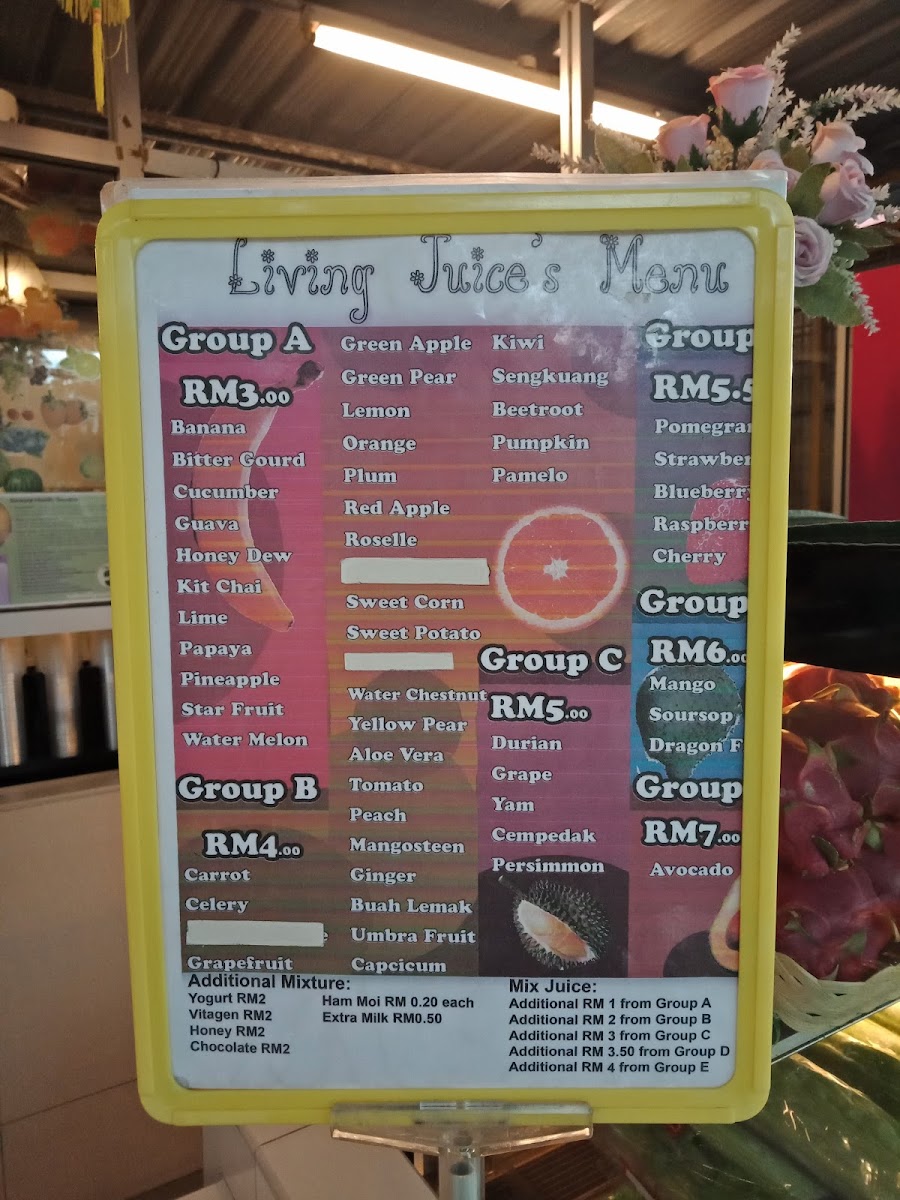 Living Juice's Menu
Group A
RM3.00
Banana
Bitter Gourd
Cucumber
Guava
Honey Dew
Kit Chai
Lime
Papaya
Pineapple
Star Fruit
Water Melon
Group B
RM4.00
Carrot
Celery
e
Grapefruit
Green Apple
Green Pear
Lemon
Orange
Plum
Red Apple
Roselle
Sweet Corn
Sweet Potato
Water Chestnut
Yellow Pear
Aloe Vera
Tomato
Peach
Mangosteen
Ginger
Buah Lemak
Umbra Fruit
Capcicum
Kiwi
Sengkuang
Beetroot
Pumpkin
Pamelo
Group C
RM5.00
Durian
Grape
Yam
Cempedak
Persimmon
Group
RM5.5
Pomegran
Strawber
Blueberry
Raspberr
Cherry
Group
RM6.00
Mango
Soursop
Dragon F
Group
RM7.00
Avocado
Additional Mixture:
Yogurt RM2
Vitagen RM2
Honey RM2
Chocolate RM2
Ham Moi RM 0.20 each
Extra Milk RM0.50
Mix Juice:
Additional RM 1 from Group A
Additional RM 2 from Group B
Additional RM 3 from Group C
Additional RM 3.50 from Group D
Additional RM 4 from Group E